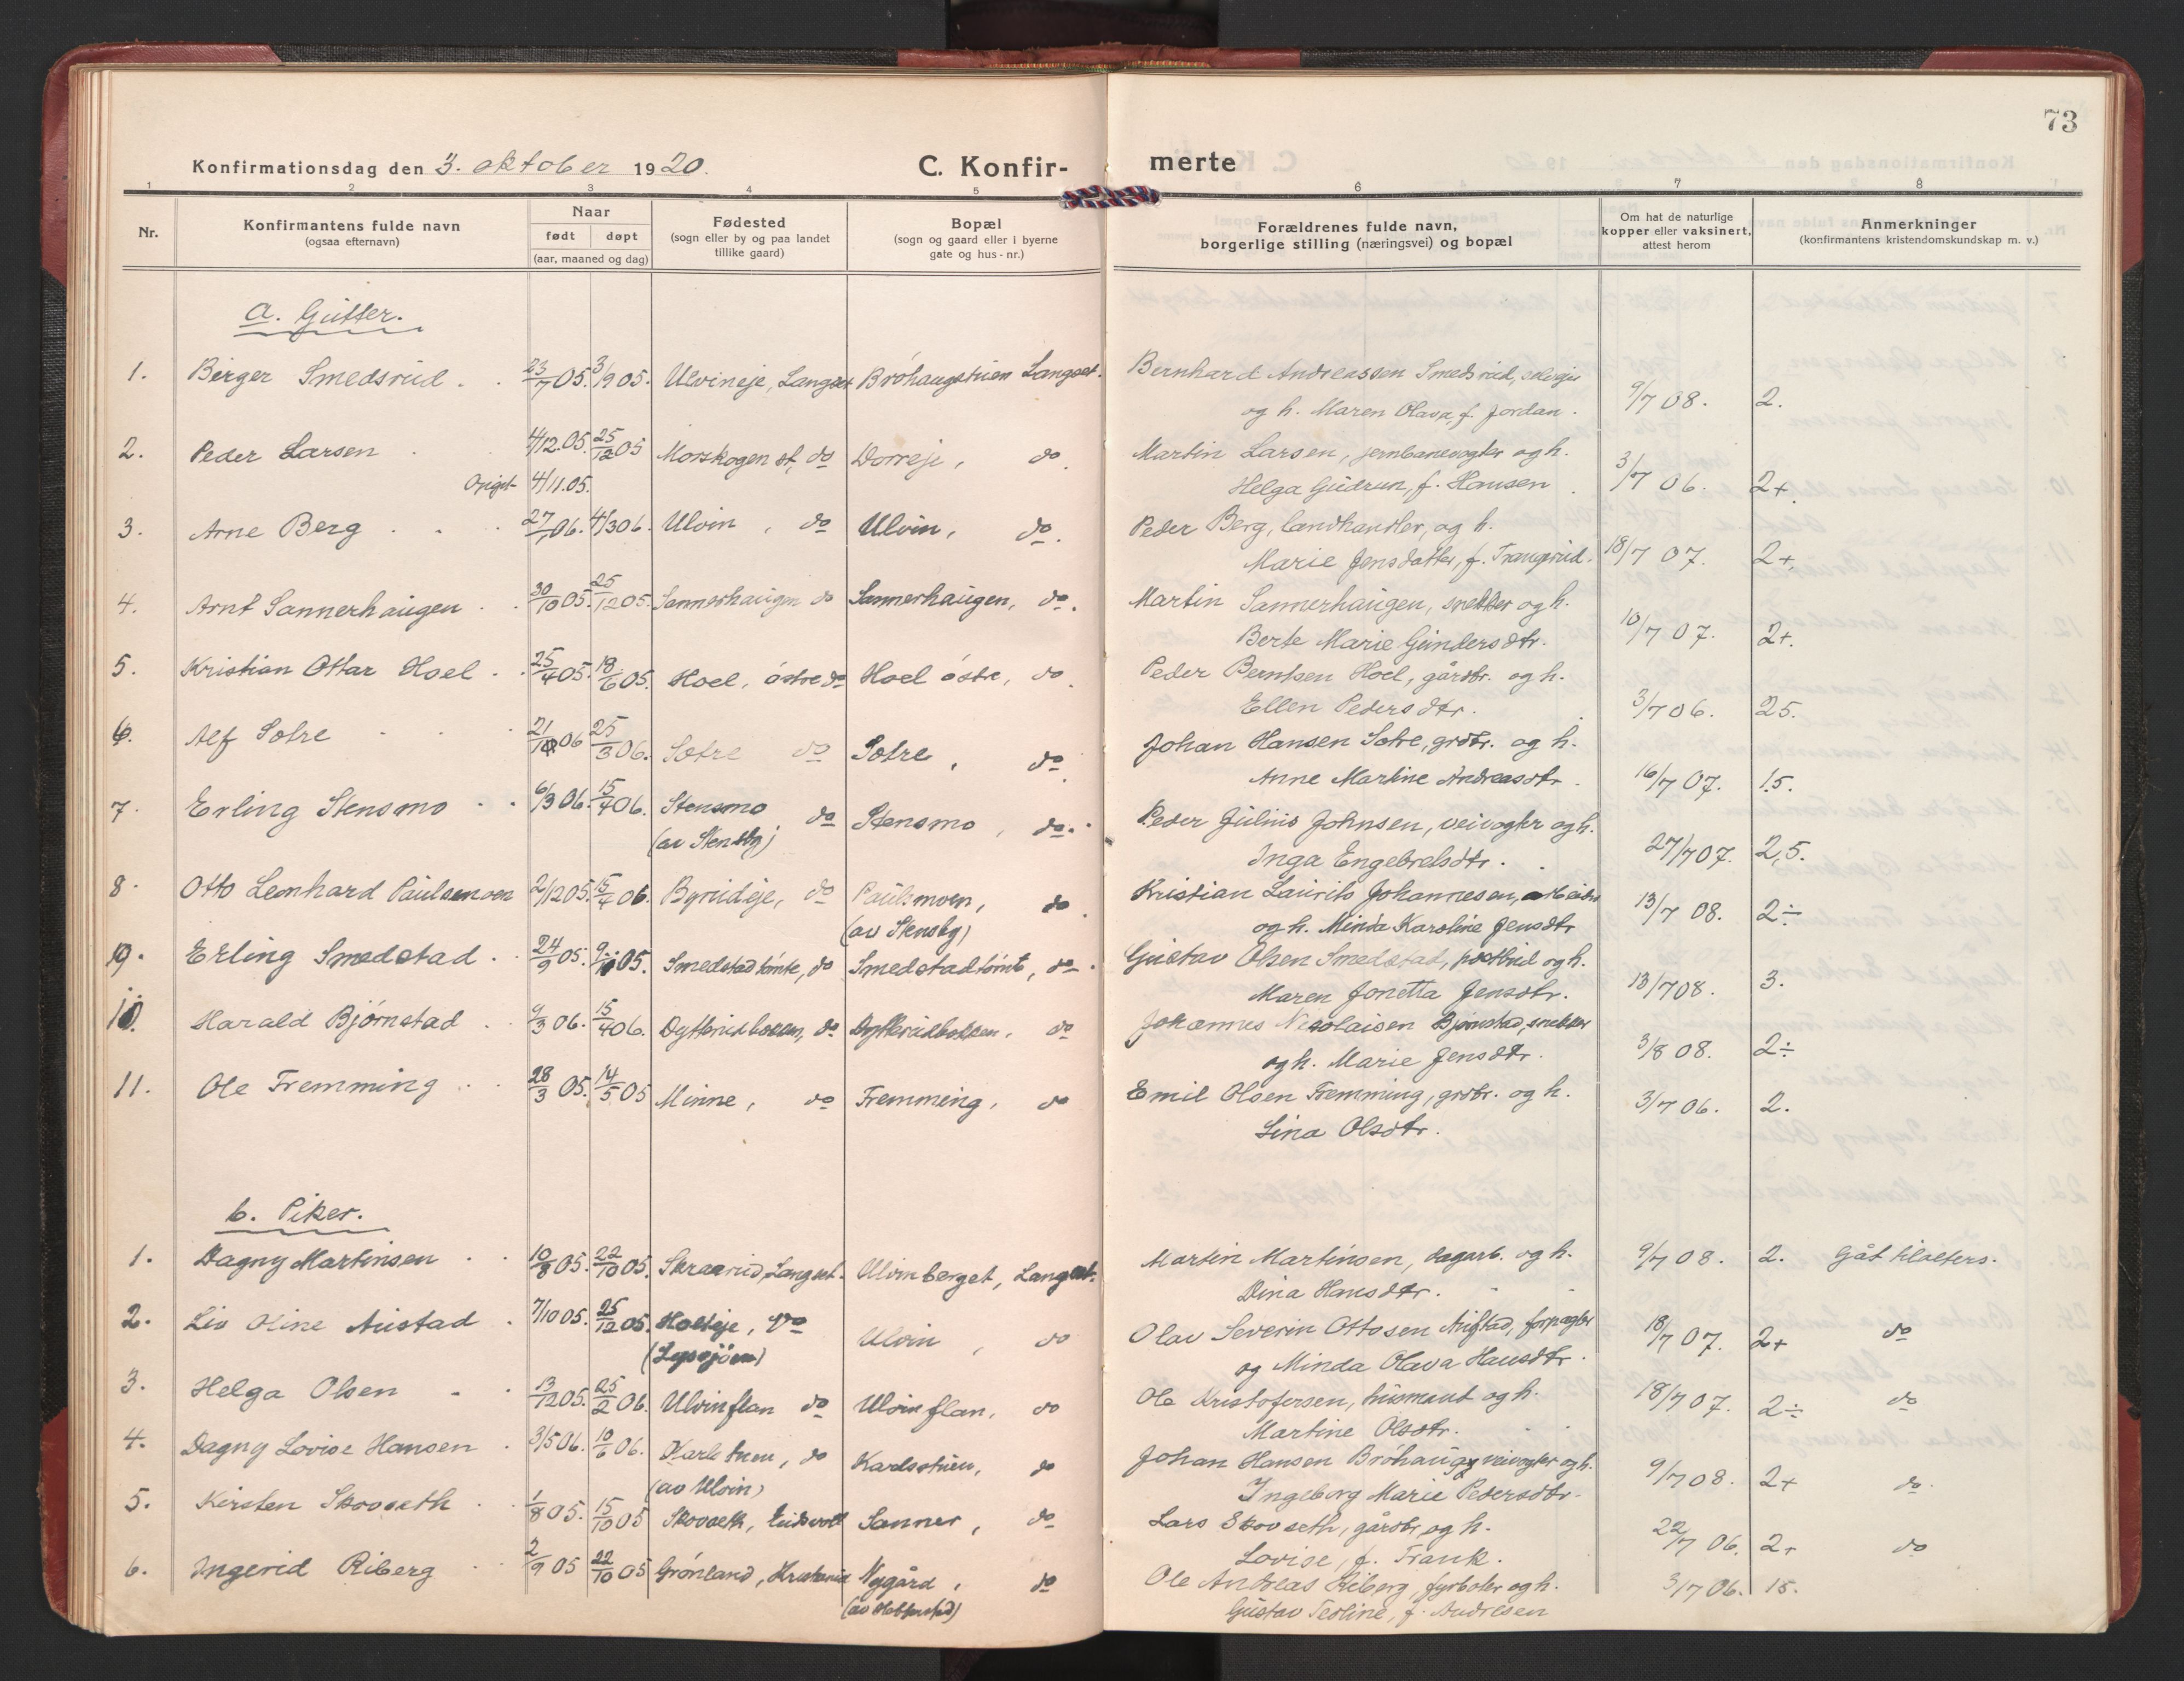 73
Konfirmationsdag den 3. oktober 1920.
C. Konfir-
merte
1 2 3 4 5 6 7 8
Nr.
Konfirmantens fulde navn
(ogsaa efternavn)
Naar
født døpt
(aar, maaned og dag)
Fødested
(sogn eller by og paa landet
tillike gaard)
Bopæl
(sogn og gaard eller i byerne
gate og hus-nr.)
Forældrenes fulde navn,
borgerlige stilling (næringsvei) og bopæl
Om hat de naturlige
kopper eller vaksinert,
attest herom
Anmerkninger
(konfirmantens kristendomskundskap m. v.)
a. Gutter.
1. Berger Smedsrud. 23/7 05. 3/9 05. Ulvineje, Langset Bröhaugstuen Langset. Bernhard Andreassen Smedsrud,
og h. Maren Olava, f. Jordan. 9/7 08. 2.
2. Peder Larsen 4/12.05. 25/12 05 Morskogen st. do Dorreje, do. Martin Larsen, jernbanevogter og h.
Opiget 4/11.05. Helga Gudrun, f. Hansen. 3/7 06. 2+.
3. Arne Berg 27/1 06. 4/3 06. Ulvin, do Ulvin, do. Peder Berg, landhandler, og h.
Marie Jensdatter, f. Trangsrud. 18/7 07. 2+.
4. Arnt Sannerhaugen 30/10 05. 25/12 05. Sannerhaugen do Sannerhaugen, do. Martin Sannerhaugen, snekker og h.
Berte Marie Gundersdtr. 10/7 07. 2+.
5. Kristian Ottar Hoel 25/4 05. 18/6 05. Hoel, östre do Hoel östre, do. Peder Berntsen Hoel, gårdbr. og h.
Ellen Pedersdtr. 3/7 06. 25.
6. Alf Sotre 21/1 06 25/3 06. Sotre do Sotre, do. Johan Hansen Sotre, grdbr. og h.
Anne Martine Andreasdtr. 16/7 07. 1.5.
7. Erling Stensmo 6/3 06. 15/4 06. Stensmo do Stensmo, do. Peder Julius Johnsen, veivogter og h.
(av Stensby) Inga Engebretsdtr. 27/7 07. 2,5.
8. Otto Leonhard Paulsenmoen 2/12 05. 15/4 06. Byrudeje, do Paulsmoen, do. Kristian Laurits Johannesen, arbeider
(av Stensby) og h. Minda Karoline Jensdtr 13/7 08. 2÷
9. Erling Smedstad. 24/9 05. 9/10 05. Smedstadtomte, do Smedstadtomt, do. Gustav Olsen Smedstad, postbud og h.
Maren Jonetta Jensdtr. 13/7 08. 3.
10. Harald Björnstad 9/3 06. 15/4 06. Dytterudbakken, do Dytterudbakken, do Johannes Nicolaisen Bjørnstad, snekker
og h. Marie Jensdtr. 3/8 08. 2÷
11. Ole Fremming 28/3 05. 14/5 05 Minne, do Fremming, do Emil Olsen Fremming, grdbr. og h.
Lina Olsdtr. 3/7 06. 2.
b. Piker.
1. Dagny Martinsen 10/8 05. 22/10 05. Skraarud, Langset. Ulvinberget, Langset. Martin Martinsen, dagarb. og h.
Dina Hansdtr. 9/7 08. 2. Gåt tilalters.
2. Liv Oline Austad 7/10 05. 25/12 05. Holteje, do Ulvin, do Olav Severin Ottosen Austad, forpagter
(Lyssjöen) og Minda Olava Hansdtr. 18/7 07. 2+ do
3. Helga Olsen 13/12 05. 25/2 06. Ulvinflan do Ulvinflan, do Ole Kristofersen, husmant og h.
Martine Olsdtr. 18/7 07. 2÷ do
4. Dagny Lovise Hansen 3/5 06. 10/6 06. Karlstuen, do Karlsstuen, do Johan Hansen Bröhaug, veivogter og h.
(av Ulvin) Ingeborg Marie Pedersdtr. 9/7 08. 2+ do.
5. Kirsten Skovseth 1/8 05. 15/10 05 Skovseth, Eidsvoll Sanner, do Lars Skovseth, gårdbr. og h.
Lovise, f. Frank. 22/7 06. 2+ do
6. Ingerid Riberg 2/9 05 22/10 05 Grönland, Kristiania Nygård, do Ole Andreas Riberg, fyrböter og h.
Gustav Tedline, f. Andresen 3/7 06. 15.